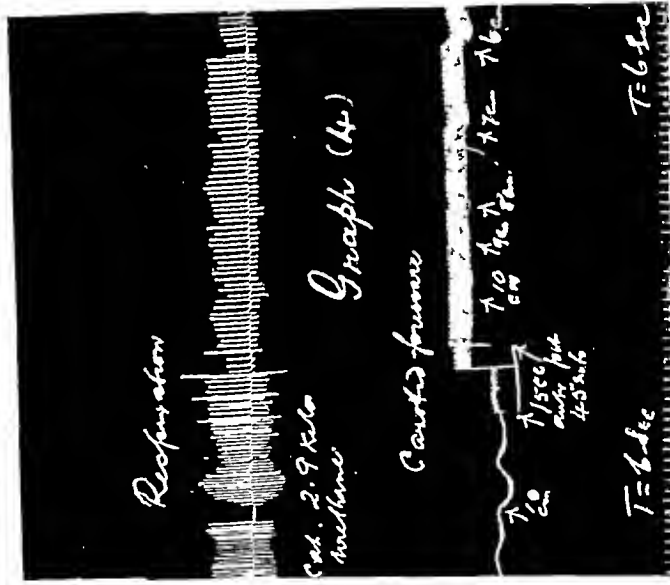 Respiration
Cat. 2.9 kilo
urethane
Graph (4)
Carotid pressure
↑10
cm
↑15cc
45
↑10
cm
↑9cm
↑8cm
↑7cm
↑6c
T=6 sec
T=6 sec